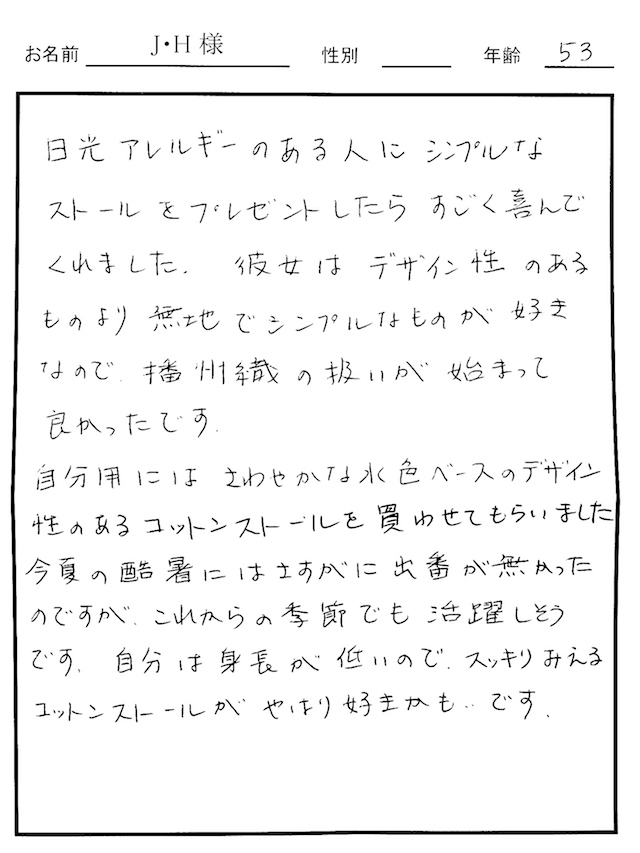 お名前 J・H 様 性別 年齢 53
日光アレルギーのある人に シンプルな
ストールをプレゼントしたら すごく喜んで
くれました. 彼女は デザイン性 のある
ものより 無地でシンプルなものが 好き
なので. 播州織の扱いが 始まって
良かったです.
自分用には さわやかな水色ベースのデザイン
性のあるコットンストールを買わせてもらいました
今夏の酷暑にはさすがに出番が無かった
のですが. これからの季節でも 活躍しそう
です. 自分は身長が 低いので. スッキリみえる
コットンストールが やはり好きかも‥です.